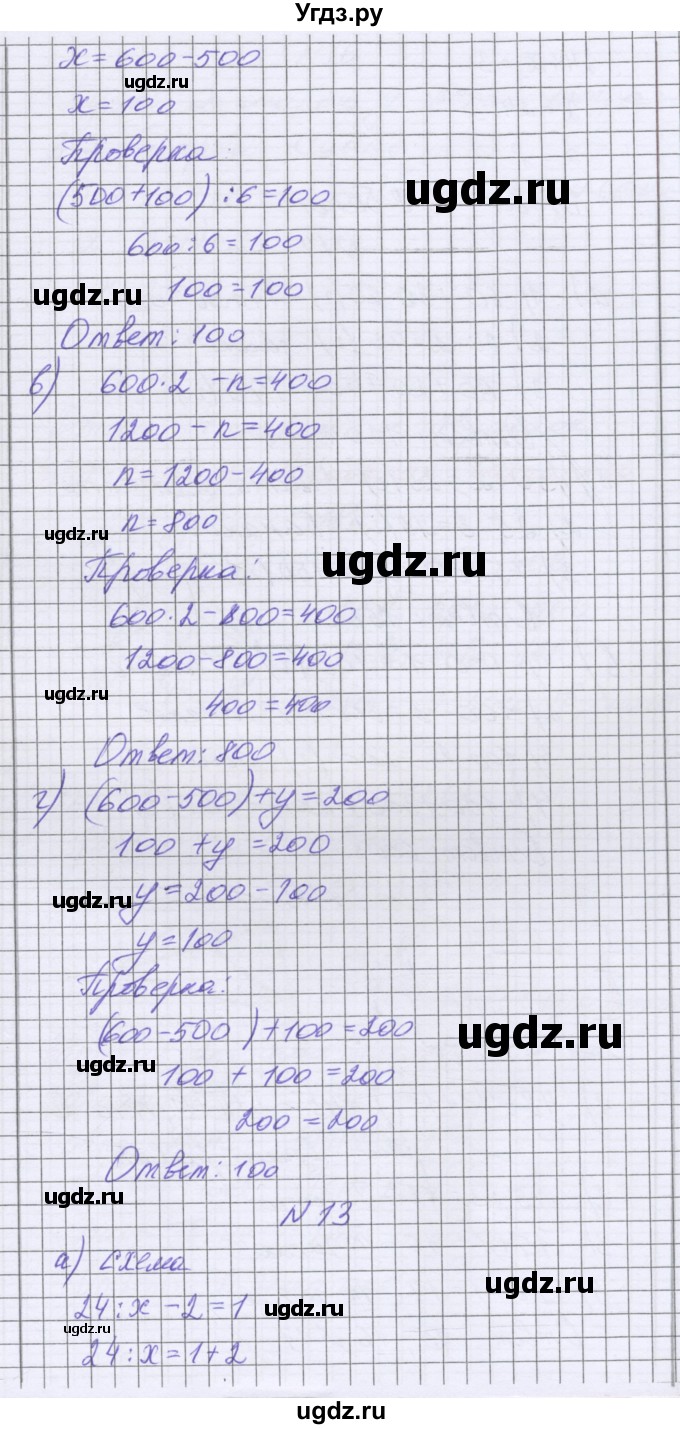 Угдз.ру
x=600-500
ugdz.ru
x=100
Проверка:
(500+100):6=100
ugdz.ru
600:6=100
ugdz.ru
100=100
Ответ: 100
в) 600·2-n=400
1200-n=400
n=1200-400
ugdz.ru
n=800
Проверка:
ugdz.ru
600·2-800=400
1200-800=400
ugdz.ru
400=400
Ответ: 800
г) (600-500)+y=200
100+y=200
ugdz.ru
y=200-100
y=100
Проверка:
(600-500)+100=200
ugdz.ru
ugdz.ru
100+100=200
200=200
Ответ: 100
ugdz.ru
N13
а) схема
ugdz.ru
24:x-2=1
ugdz.ru
ugdz.ru
24:x=1+2
ugdz.ru